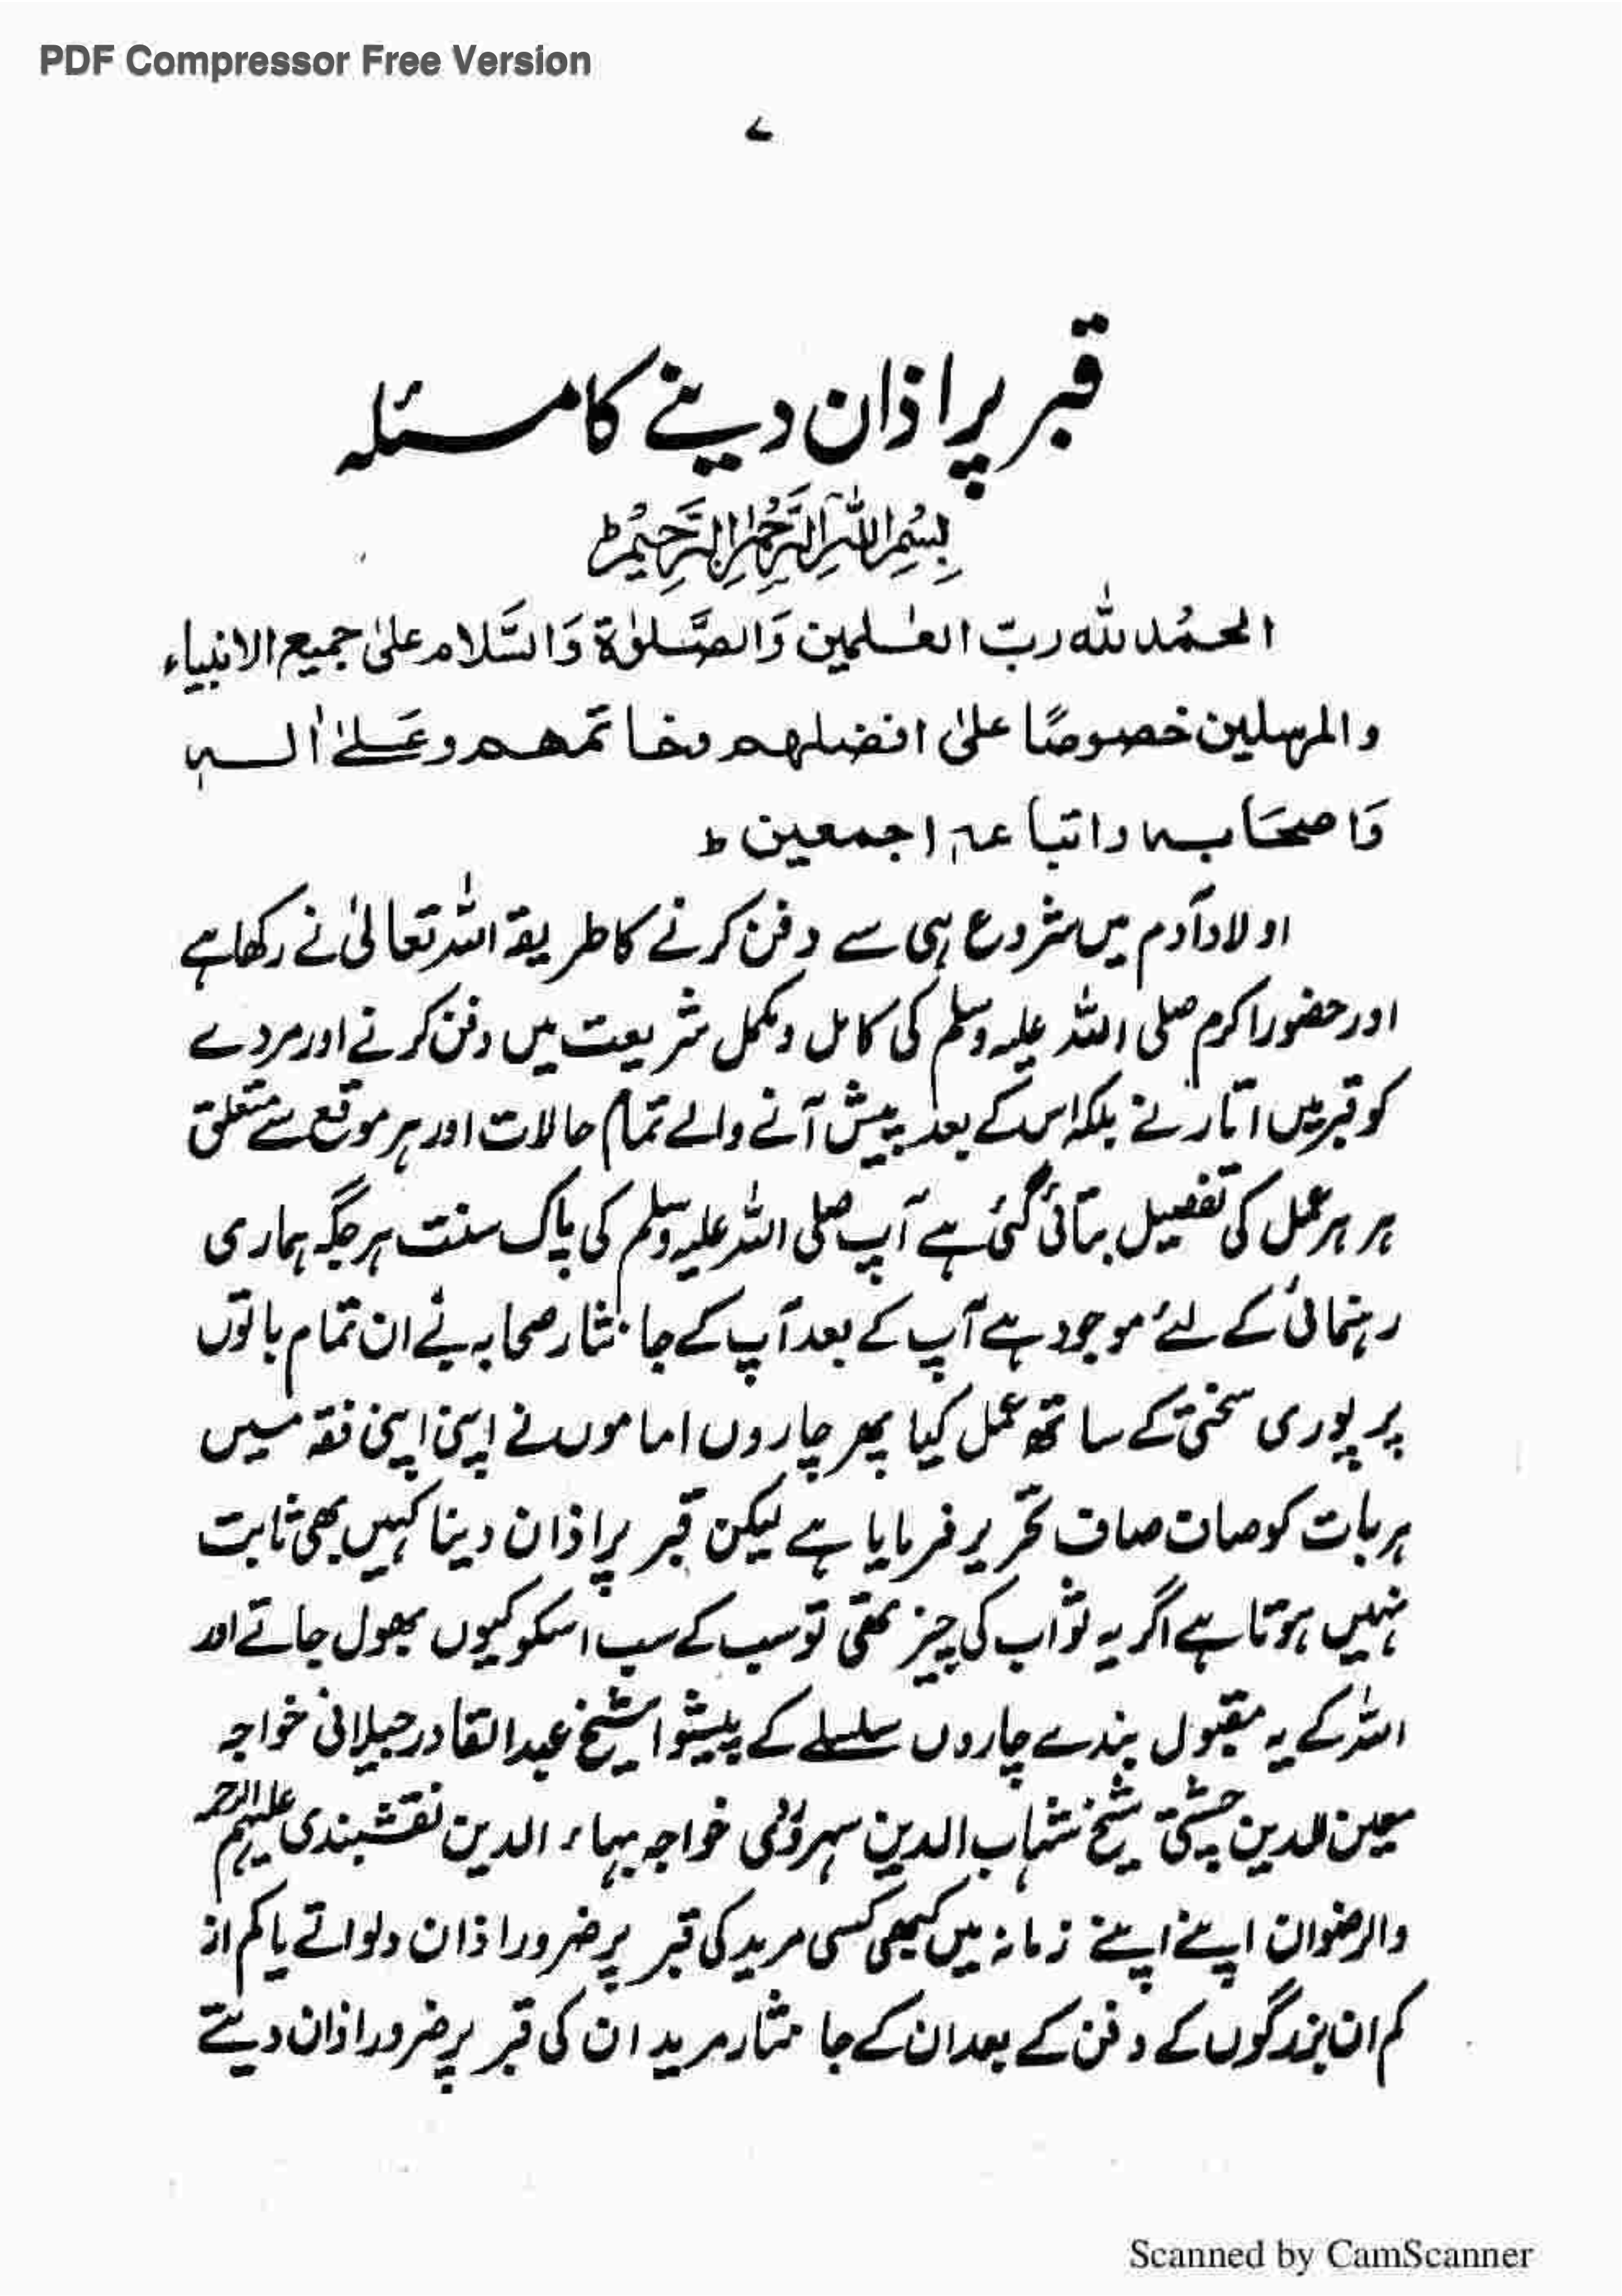 PDF Compressor Free Version
۷
قبر پر اذان دینے کا مسئلہ
بِسْمِ اللّٰہِ الرَّحْمٰنِ الرَّحِیْمِ ط
الحمْدللّٰه ربّ العٰلمین وَالصَّلوٰة وَالسَّلام علیٰ جمیع الانبیاء
والمرسلین خصوصًا علیٰ افضلهم وخاتمهم وعَلیٰ اٰلہ
وَاصحَابہ واتباعہ اجمعین ط
اولاد آدم میں شروع ہی سے دفن کرنے کا طریقہ اللہ تعالیٰ نے رکھا ہے
اور حضور اکرم صلی اللہ علیہ وسلم کی کامل ومکمل شریعت میں دفن کرنے اور مردے
کو قبر میں اتارنے بلکہ اس کے بعد پیش آنے والے تمام حالات اور ہر موقع سے متعلق
ہر ہر عمل کی تفصیل بتائی گئی ہے آپ صلی اللہ علیہ وسلم کی پاک سنت ہر جگہ ہماری
رہنمائی کے لئے موجود ہے آپ کے بعد آپ کے جانثار صحابہ نے ان تمام باتوں
پر پوری سختی کے ساتھ عمل کیا پھر چاروں اماموں نے اپنی اپنی فقہ میں
ہر بات کو صاف صاف تحریر فرمایا ہے لیکن قبر پر اذان دینا کہیں بھی ثابت
نہیں ہوتا ہے اگر یہ ثواب کی چیز تھی تو سب کے سب اسکو کیوں بھول جاتے اور
اللہ کے یہ مقبول بندے چاروں سلسلے کے پیشوا شیخ عبد القادر جیلانی خواجہ
معین الدین چشتی شیخ شہاب الدین سہروردی خواجہ بہاء الدین نقشبندی علیہم الرحمہ
والرضوان اپنے اپنے زمانہ میں کبھی کسی مرید کی قبر پر ضرور اذان دلواتے یا کم از
کم ان بزرگوں کے دفن کے بعد ان کے جانثار مرید ان کی قبر پر ضرور اذان دیتے
Scanned by CamScanner